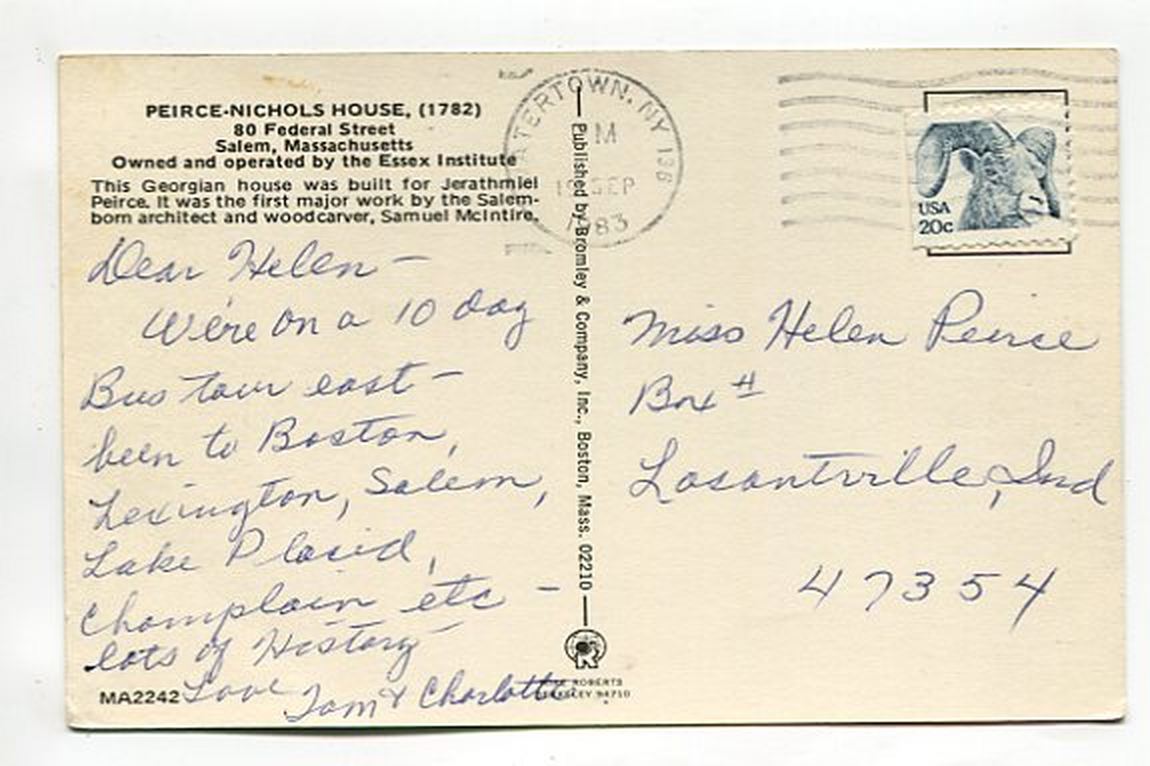 PEIRCE-NICHOLS HOUSE, (1782)
80 Federal Street
Salem, Massachusetts
Owned and operated by the Essex Institute
This Georgian house was built for Jerathmiel
Peirce. It was the first major work by the Salem-
born architect and woodcarver, Samuel McIntire.
Dear Helen -
We're on a 10 day
Bus tour east -
been to Boston,
Lexington, Salem,
Lake Placid,
Champlain etc -
lots of History -
Love Tom & Charlotte
MA2242
Published by Bromley & Company, Inc., Boston, Mass. 02210
ROBERTS
BERKELEY 94710
ATERTOWN, NY 136
M
SEP
1983
USA
20c
Miss Helen Peirce
Box #
Losantville, Ind
47354